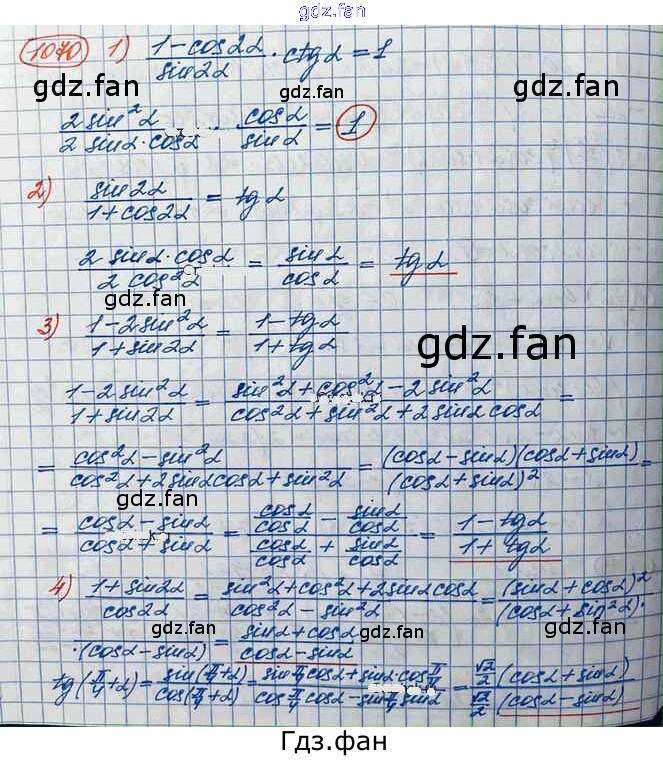 gdz.fan
1070 1) (1-cos2α)/(sin2α) · ctgα = 1
gdz.fan gdz.fan
(2sin²α)/(2sinα·cosα) · (cosα)/(sinα) = 1
gdz.fan
2) (sin2α)/(1+cos2α) = tgα
gdz.fan gdz.fan
(2sinα·cosα)/(2cos²α) = (sinα)/(cosα) = tgα
gdz.fan
3) (1-2sin²α)/(1+sin2α) = (1-tgα)/(1+tgα)
gdz.fan gdz.fan
(1-2sin²α)/(1+sin2α) = (sin²α+cos²α-2sin²α)/(cos²α+sin²α+2sinαcosα) =
gdz.fan
= (cos²α-sin²α)/(cos²α+2sinαcosα+sin²α) = ((cosα-sinα)(cosα+sinα))/((cosα+sinα)²) =
gdz.fan gdz.fan
= (cosα-sinα)/(cosα+sinα) = (cosα/cosα - sinα/cosα)/(cosα/cosα + sinα/cosα) = (1-tgα)/(1+tgα)
gdz.fan
4) (1+sin2α)/(cos2α) = (sin²α+cos²α+2sinαcosα)/(cos²α-sin²α) = ((sinα+cosα)²)/((cosα+sin²α)·
gdz.fan gdz.fan
·(cosα-sinα) = (sinα+cosα)/(cosα-sinα)
tg(π/4+α) = (sin(π/4+α))/(cos(π/4+α)) = (sin π/4 cosα+sinα·cos π/4)/(cos π/4 cosα-sin π/4 sinα) = (√2/2 (cosα+sinα))/(√2/2 (cosα-sinα))
gdz.fan
Гдз.фан